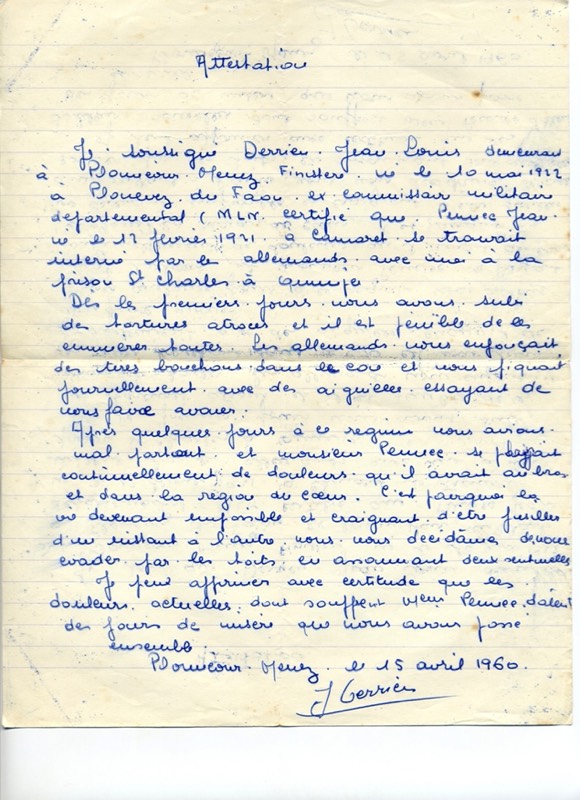 Attestation
Je soussigné Derrien Jean Louis demeurant
à Plounéour Menez Finistère né le 10 mai 1922
à Plonevez du Faou ex commissair militaire
départemental (MLN. certifie que Pennec Jean
né le 12 février 1921 à Camaret se trouvait
interné par les allemands avec moi à la
prison St Charles à Quimper
Dès les premiers jours nous avons subi
des tortures atroces et il est pénible de les
enumérer toutes. Les allemands nous enfonçait
des tires bouchons dans le cou et nous piquait
journellement avec des aiguilles essayant de
nous faire avouer.
Après quelques jours à ce regime nous avions
mal partout et monsieur Pennec se plaignait
continuellement de douleurs qu'il avait au bras
et dans la region du cœur. C'est pourquoi la
vie devenant impossible et craignant d'être fusillés
d'un instant à l'autre nous nous décidâmes de nous
evader par les toits en assommant deux sentinelles
Je peux affirmer avec certitude que les
douleurs actuelles dont souffrent Mr Pennec datent
des jours de misère que nous avons passé
ensemble.
Plounéour Menez le 15 avril 1960.
J Derrien